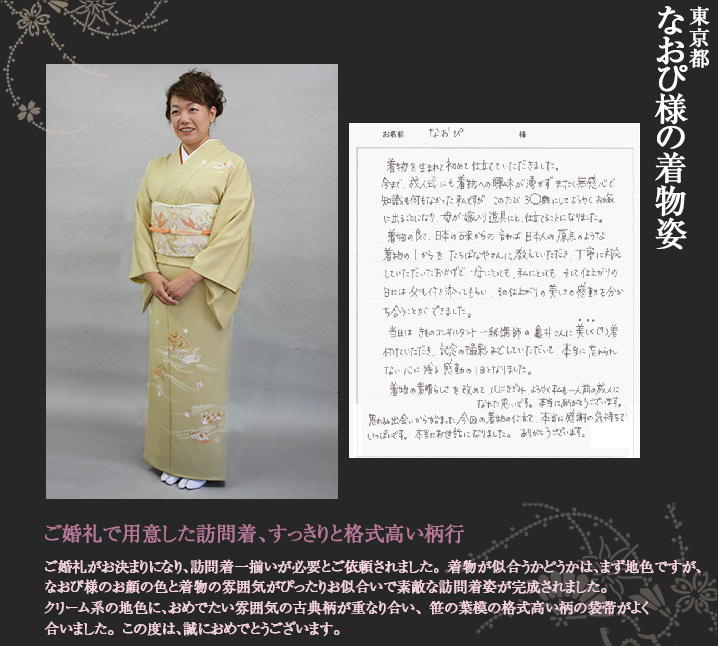 東京都
なおぴ様の着物姿
お名前 なおぴ 様
着物を生まれて初めて仕立てていただきました。
今まで、成人式にも着物への興味が湧かずまったく無関心で
知識も何もなかった私ですが、このたび 3〇歳にしてようやくお嫁
に出ることになり、母が嫁入り道具にと、仕立てることになりました。
着物の良さ、日本の古来からの、言わば日本人の原点のような
着物の1から を たちばなやさんに、教えていただき、丁寧に対応
していただいたおかげで、母にとっても、私にとっても、そして仕上がりの
日には父も付き添ってもらい、その仕上がりの美しさの感動を分か
ち合うことができました。
当日は きものコンサルタント 一級講師の亀井さんに美しく(?)着
付けていただき、記念の撮影までしていただいて、本当に忘れられ
ない 心に残る感動の1日となりました。
着物の素晴らしさを改めて 心にきざみ ようやく私も一人前の成人に
なれた思いです。本当にありがとうございます。
思わぬ出会いから始まった今回の着物の仕立て、本当に感謝の気持ちで
いっぱいです。本当にお世話になりました。ありがとうございます。
ご婚礼で用意した訪問着、すっきりと格式高い柄行
ご婚礼がお決まりになり、訪問着一揃いが必要とご依頼されました。着物が似合うかどうかは、まず地色ですが、
なおぴ様のお顔の色と着物の雰囲気がぴったりお似合いで素敵な訪問着姿が完成されました。
クリーム系の地色に、おめでたい雰囲気の古典柄が重なり合い、笹の葉模の格式高い柄の袋帯がよく
合いました。この度は、誠におめでとうございます。